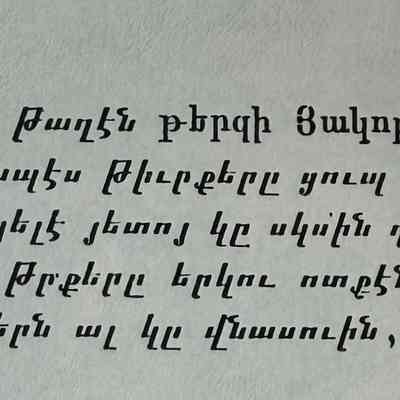 Թաղէն թերզի Յակոբ
ապէս Թիւրքերը ցուպ
ելէ յետոյ կը սկսին
Թրքերը երկու ոտքէն
երն ալ կը վնասուին,